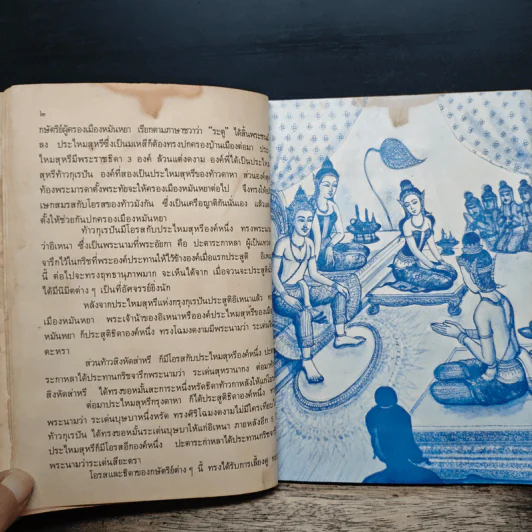 ๒
กษัตริย์ผู้ครองเมืองหมันหยา เรียกตามภาษาชวาว่า "ระตู" ได้สิ้นพระชนม์
ลง ประไหมสุหรีซึ่งเป็นมเหสีก็ต้องทรงปกครองบ้านเมืองต่อมา
ไหมสุหรีมีพระราชธิดา ๓ องค์ ล้วนแต่งดงาม องค์พี่ได้เป็นประไหม
สุหรีท้าวกุเรปัน องค์ที่สองเป็นประไหมสุหรีของท้าวดาหา ส่วนองค์
ท้องพระมารดาตั้งพระทัยจะให้ครองเมืองหมันหยาต่อไป จึงทรงให้
เษกสมรสกับโอรสของท้าวมังกัน ซึ่งเป็นเครือญาติกันนั่นเอง แล้ว
ตั้งให้ช่วยกันปกครองเมืองหมันหยา
ท้าวกุเรปันมีโอรสกับประไหมสุหรีองค์หนึ่ง ทรงพระนาม
ว่าอิเหนา ซึ่งเป็นพระนามที่พระอัยกา คือ ปะตาระกาหลา ผู้เป็นเทวดา
จารึกไว้ในกริชที่พระองค์ประทานให้ไว้ข้างองค์เมื่อแรกประสูติ อิเหนา
นี้ ต่อไปจะทรงฤทธานุภาพมาก จะเห็นได้จาก เมื่อจวนจะประสูติ
ได้มีนิมิตต่าง ๆ เป็นที่อัศจรรย์ยิ่งนัก
หลังจากประไหมสุหรีแห่งกรุงกุเรปันประสูติอิเหนาแล้ว
เมืองหมันหยา พระเจ้าน้าของอิเหนาหรือองค์ประไหมสุหรีของเมือง
หมันหยา ก็ประสูติธิดาองค์หนึ่ง ทรงโฉมงดงามมีพระนามว่า ระเด่นจิน
ตะหรา
ส่วนท้าวสิงหัดส่าหรี ก็มีโอรสกับประไหมสุหรีองค์หนึ่ง
ระกาหลาได้ประทานกริชจารึกพระนามว่า ระเด่นสุหรานากง ต่อมา
สิงหัดส่าหรี ได้ทรงขอหมั้นสะการะหนึ่งหรัดธิดาท้าวกาหลังให้แก่
ต่อมาประไหมสุหรีกรุงดาหา ก็ได้ประสูติธิดาองค์หนึ่ง
พระนามว่า ระเด่นบุษบาหนึ่งหรัด ทรงศิริโฉมงดงามไม่มีใครเทียบ
ท้าวกุเรปัน ได้ทรงขอหมั้นระเด่นบุษบาให้แก่อิเหนา ภายหลังอีก
ประไหมสุหรีก็มีโอรสอีกองค์หนึ่ง ปะตาระกาหลาได้ประทานกริช
พระนามว่าระเด่นสียะตรา
โอรสและธิดาของกษัตริย์ต่าง ๆ นี้ ทรงได้รับการเลี้ยงดู